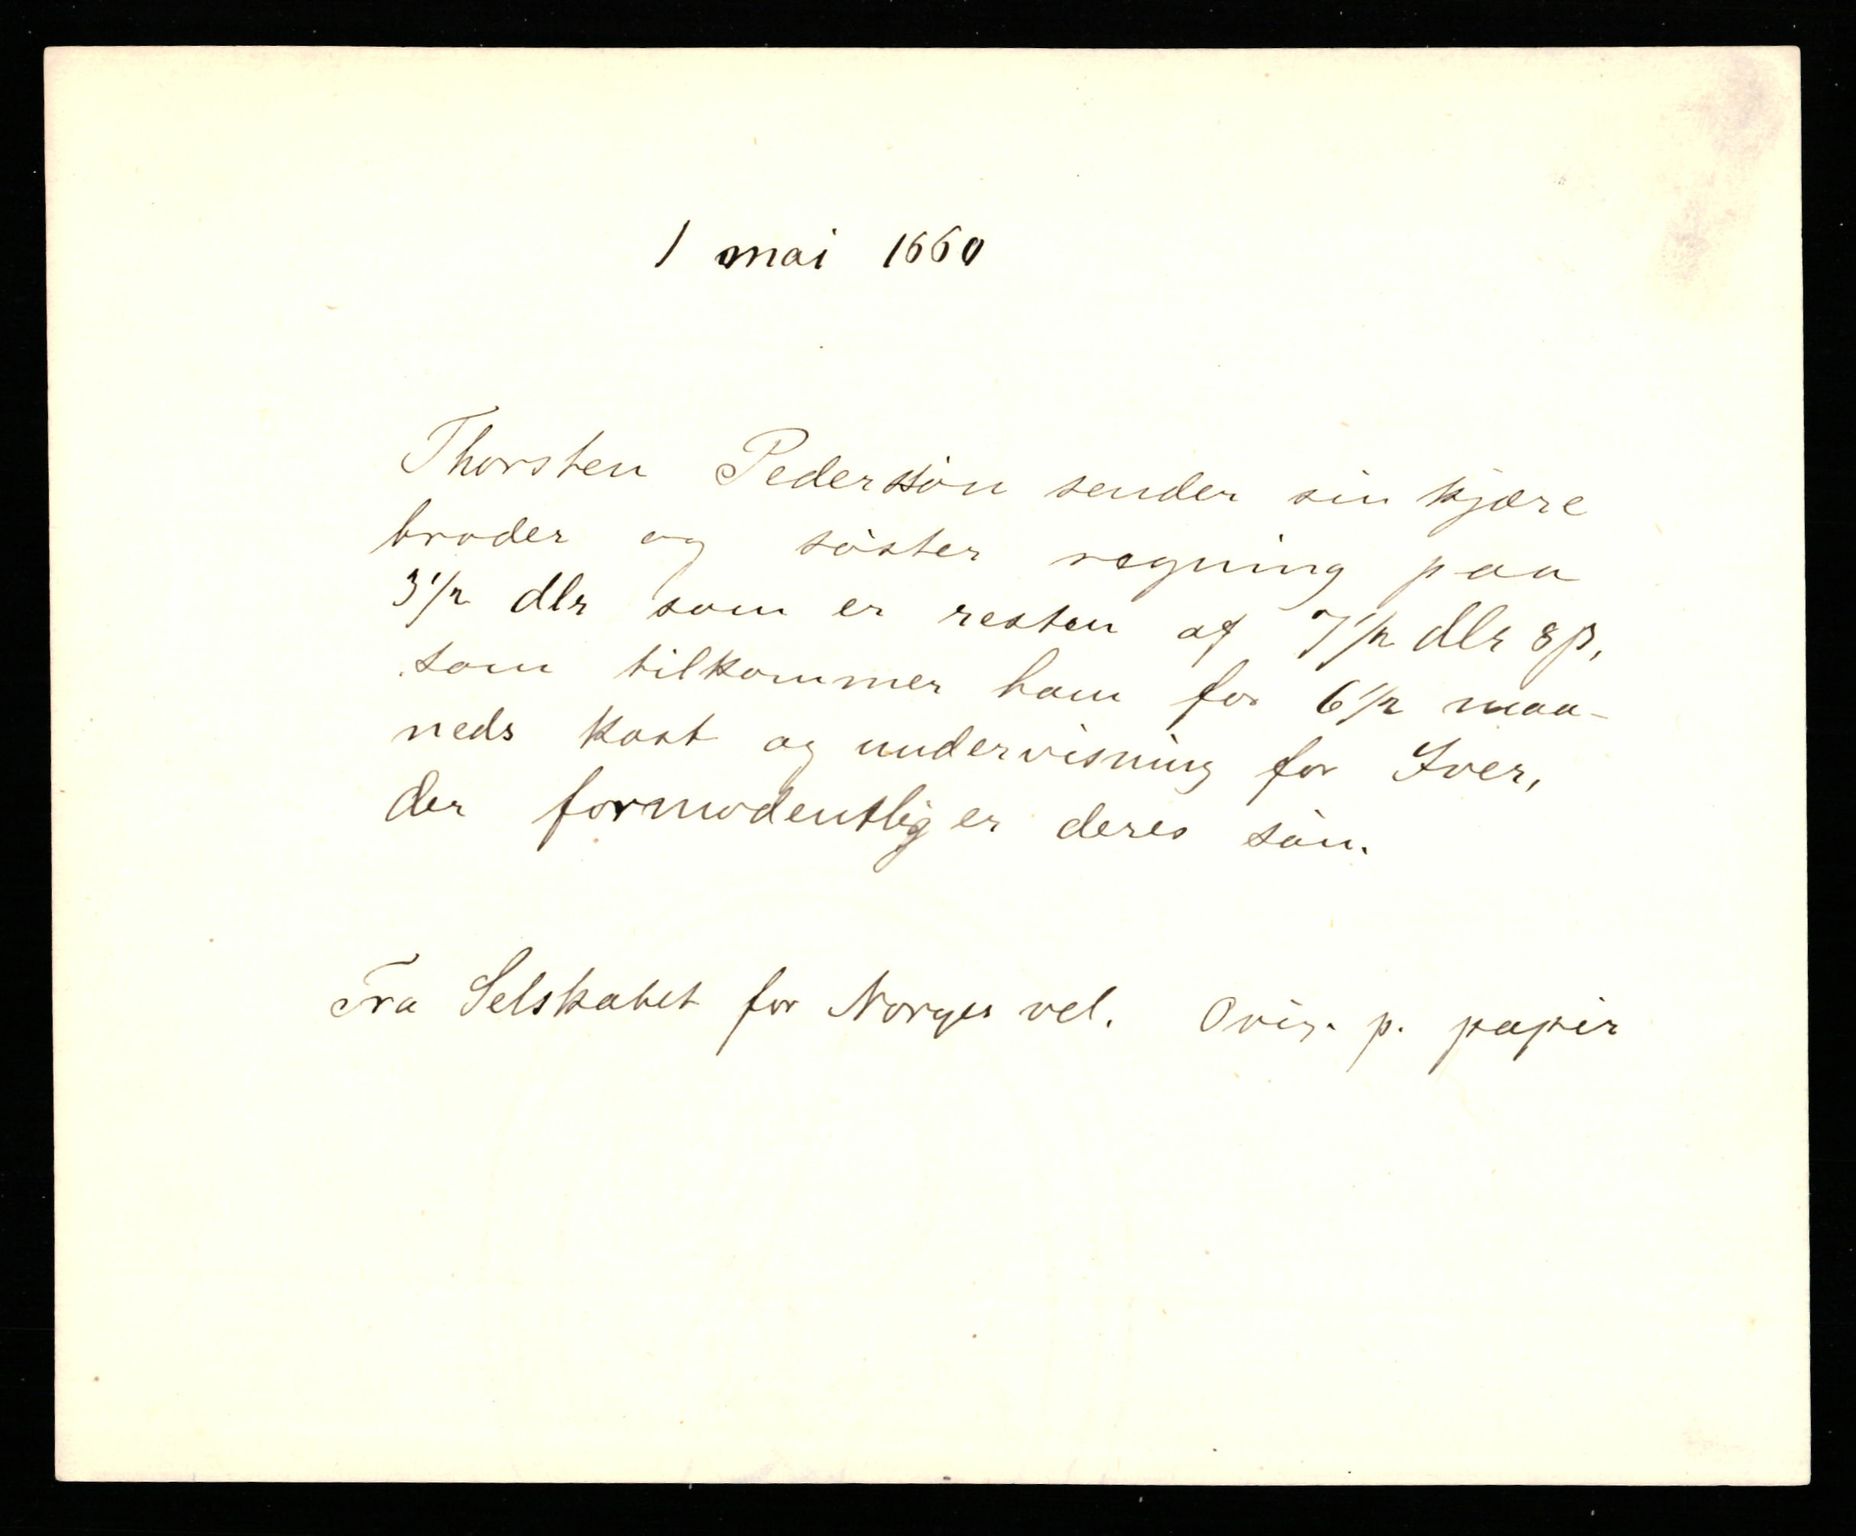 1 mai 1660
Thorsten Pederssön sender sin kjære
broder og söster regning paa
3 1/2 dlr som er resten af 7 1/2 dlr 8 β,
som tilkommer ham for 6 1/2 maa-
neds kost og undervisning for Iver,
der formodentlig er deres sön.
Fra Selskabet for Norges vel. Orig. p. papir